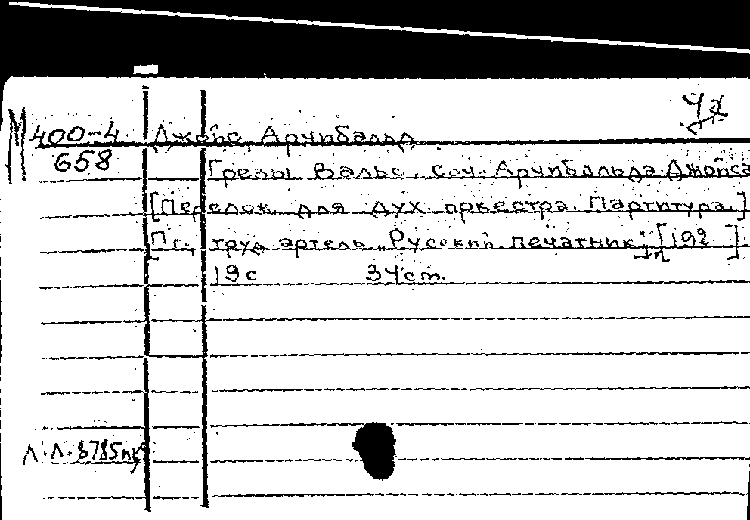 М 400-4 Джойс, Арчибальд.
658 Грезы Вальс. соч. Арчибальда Джойса
[Перелож. для дух. оркестра. Партитура.]
[Пг., труд. артель „Русский печатник“, [192 ]
19 с 34 cm.
Л.Л.